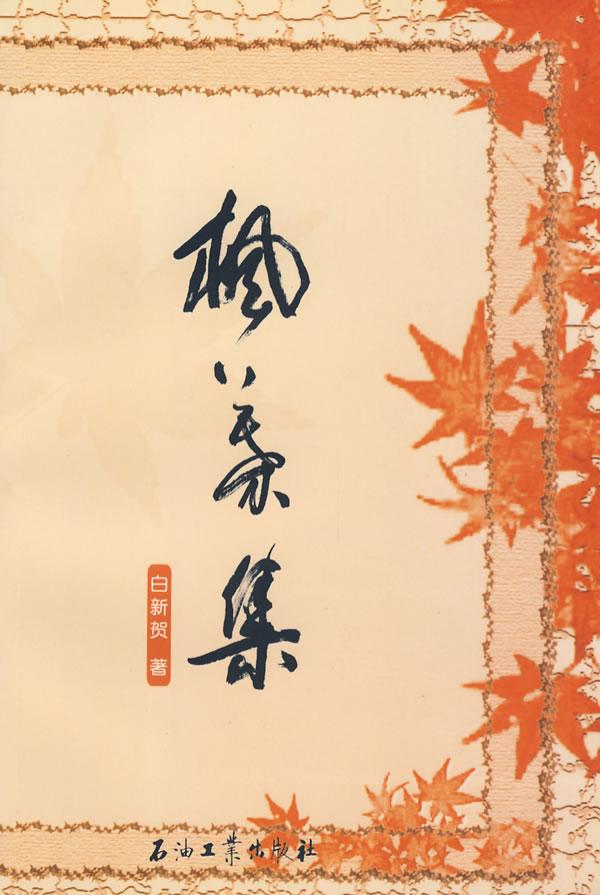 楓葉集
白新贺 著
石油工業出版社